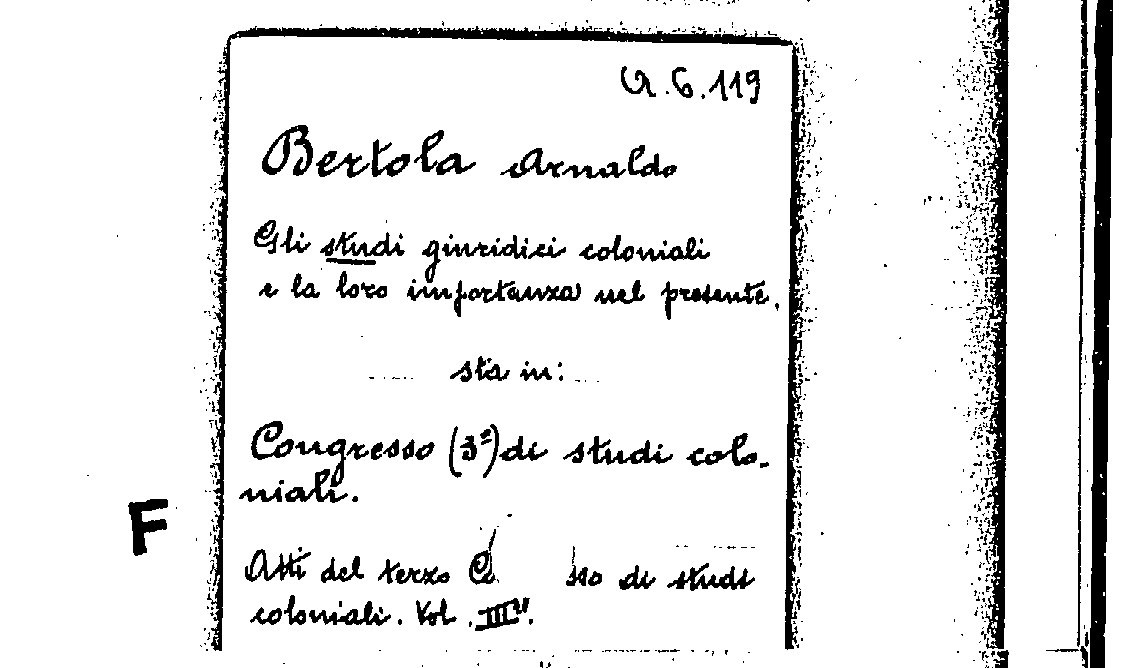 A.6.119
Bertola Arnaldo
Gli studi giuridici coloniali
e la loro importanza nel presente.
sta in:
Congresso (3º) di studi colo-
niali.
F
Atti del terzo di studi
coloniali. Vol. III°.